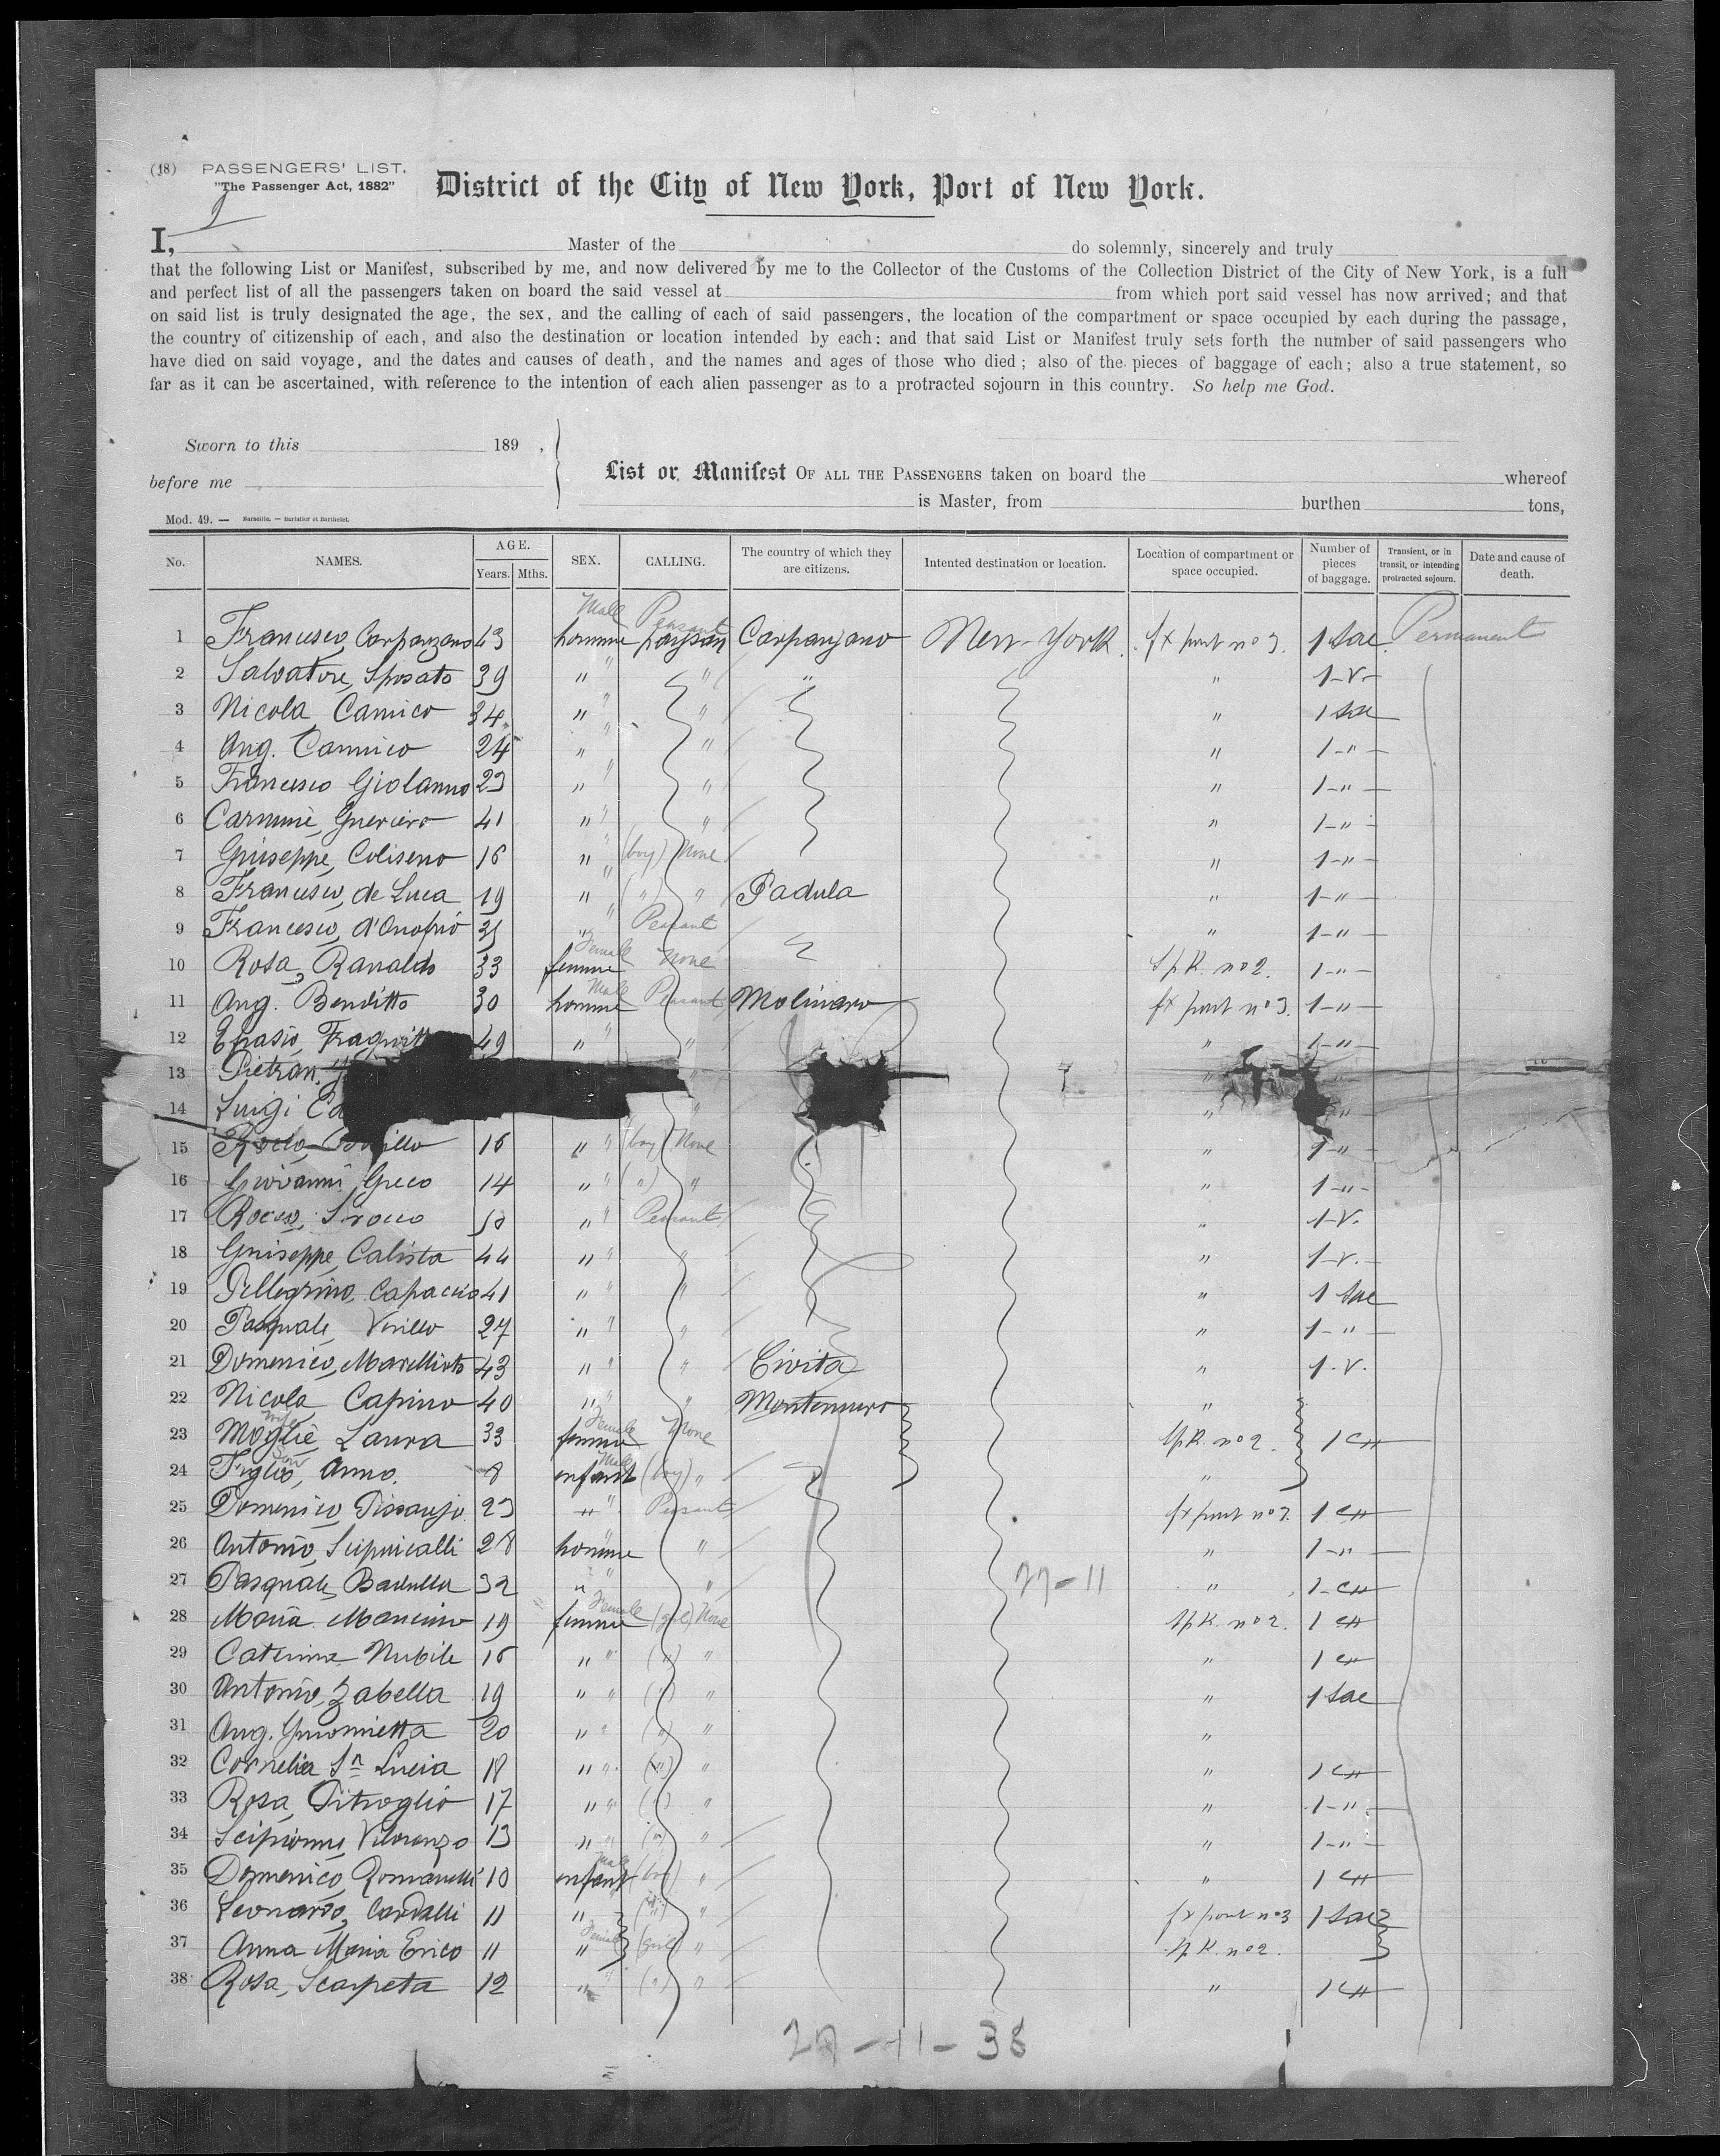 (18) PASSENGERS' LIST.
"The Passenger Act, 1882"
District of the City of New York, Port of New York.
I, Master of the do solemnly, sincerely and truly
that the following List or Manifest, subscribed by me, and now delivered by me to the Collector of the Customs of the Collection District of the City of New York, is a full
and perfect list of all the passengers taken on board the said vessel at from which port said vessel has now arrived; and that
on said list is truly designated the age, the sex, and the calling of each of said passengers, the location of the compartment or space occupied by each during the passage,
the country of citizenship of each, and also the destination or location intended by each; and that said List or Manifest truly sets forth the number of said passengers who
have died on said voyage, and the dates and causes of death, and the names and ages of those who died; also of the pieces of baggage of each; also a true statement, so
far as it can be ascertained, with reference to the intention of each alien passenger as to a protracted sojourn in this country. So help me God.
Sworn to this 189 ,
before me
List or Manifest OF ALL THE PASSENGERS taken on board the whereof
is Master, from burthen tons,
Mod. 49. — Marseille. — Barlatier et Barthelet.
No. NAMES. AGE. Years. Mths. SEX. CALLING. The country of which they are citizens. Intented destination or location. Location of compartment or space occupied. Number of pieces of baggage. Transient, or in transit, or intending protracted sojourn. Date and cause of death.
Male Peasant
1 Francesco, Carpanzano 43 homme paysan Carpanzano New-York fx pont no 3. 1 Sac Permanent
2 Salvatore, Sposato 39 " " " " 1-V.
3 Nicola Camico 34 " " " 1 Sac
4 Ang. Cannico 24 " " " 1-"
5 Francesco Giolanno 23 " " " 1-"
6 Carmine, Gueriero 41 " " " 1-"
7 Giuseppe, Coliseno 16 " (boy) None " 1-"
8 Francesco, de Luca 19 " (") " Padula " 1-"
9 Francesco, d'Onofrio 31 " Peasant " 1-"
10 Rosa, Ranaldo 33 femme Female None no 2. 1-"
11 Ang. Benditto 30 homme Male Peasant Molinaro fx pont no 3. 1-"
12 49 " " " 1-"
13 Pietran "
14 Luigi " "
15 16 " " (boy) None " 1-"
16 Giovanni, Greco 14 " " (") " " 1-"-
17 Rocco, Sirocco " " Peasant " 1-V.
18 Giuseppe, Calista 44 " " " " 1-V.
19 Pellegrino, Capaccio 41 " " " " 1 Sac
20 Pasquale, Virillo 27 " " " " 1-"
21 Domenico, 43 " " " Civita " 1.V.
22 Nicola Capino 40 " " " Montemuro "
23 Moglie Wife Laura 33 femme Female None no 2.
24 Figlio Son, Anno. 8 enfant Male (boy) " "
25 Domenico, 23 " " Peasant fx pont no 3.
26 Antonio, 28 homme " " 1-"
27 Pasquale, Badulla 32 " " " 27-11 "
28 Maria Mancino 19 femme Female (girl) None no 2.
29 Caterina Nubile 16 " " (") " "
30 Antonio, Zabella 19 " " (") " " 1 Sac
31 Ang. 20 " " (") " "
32 Cornelia Lucia 18 " " (") " "
33 Rosa, Pitroglio 17 " " (") " " 1-"
34 Scipionne, Vilorenzo 13 " " (") " " 1-"
35 Domenico, Romanelli 10 enfant Male (boy) " "
36 Leonardo, Cardalli 11 " (") " fx pont no 3 1 Sac
37 Anna Maria Erico 11 " Female (girl) " no 2.
38 Rosa, Scarpeta 12 " " (") " "
27-11-38